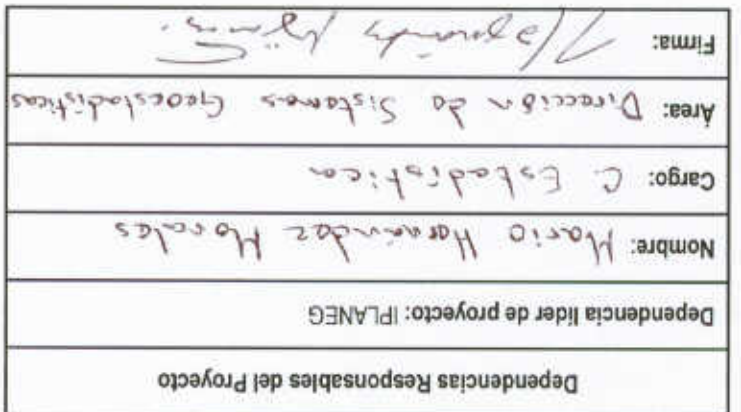 Dependencias Responsables del Proyecto
Dependencia líder de proyecto: IPLANEG
Nombre: Mario Hernández Morales
Cargo: C. Estadística
Área: Dirección de Sistemas Geoestadísticas
Firma: